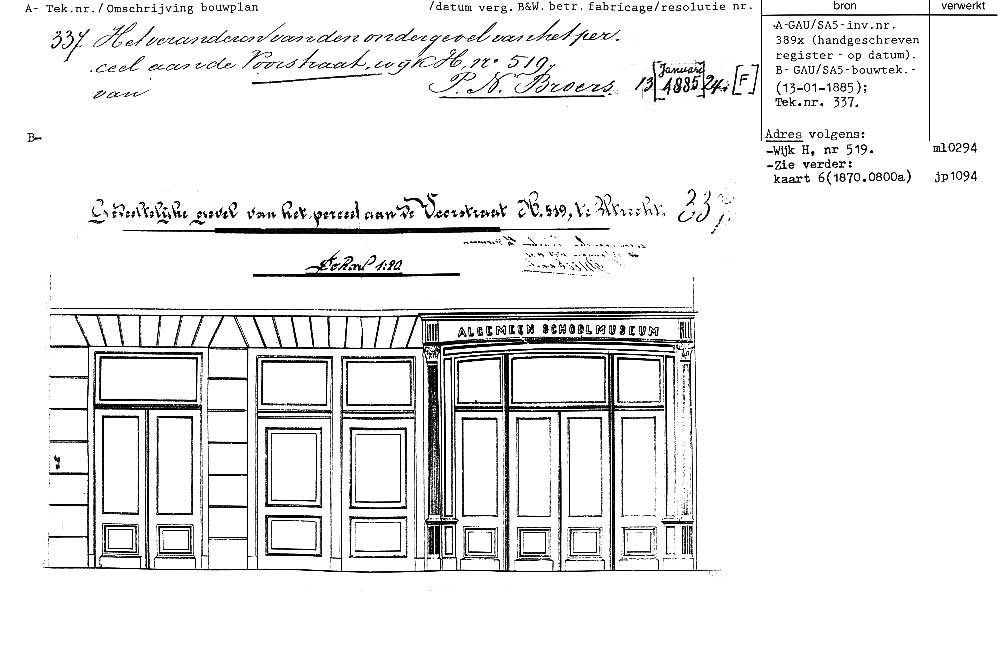 A- Tek.nr./Omschrijving bouwplan /datum verg. B&W. betr. fabricage/resolutie nr. bron verwerkt
337 Het veranderen van den ondergevel van het per.
ceel aan de Voorstraat, wyk H, nº 519,
van P. N. Broers. 13 [Januari 1885] 24. [F]
A-GAU/SA5-inv.nr.
389x (handgeschreven
register - op datum).
B-GAU/SA5-bouwtek.-
(13-01-1885);
Tek.nr. 337.
Adres volgens:
-Wijk H, nr 519. ml0294
-Zie verder:
kaart 6(1870.0800a) jp1094
B-
Gedeeltelijke gevel van het perceel aan de Voorstraat N. 519, te Utrecht. 337
Schaal 1:20
ALGEMEEN SCHOOLMUSEUM